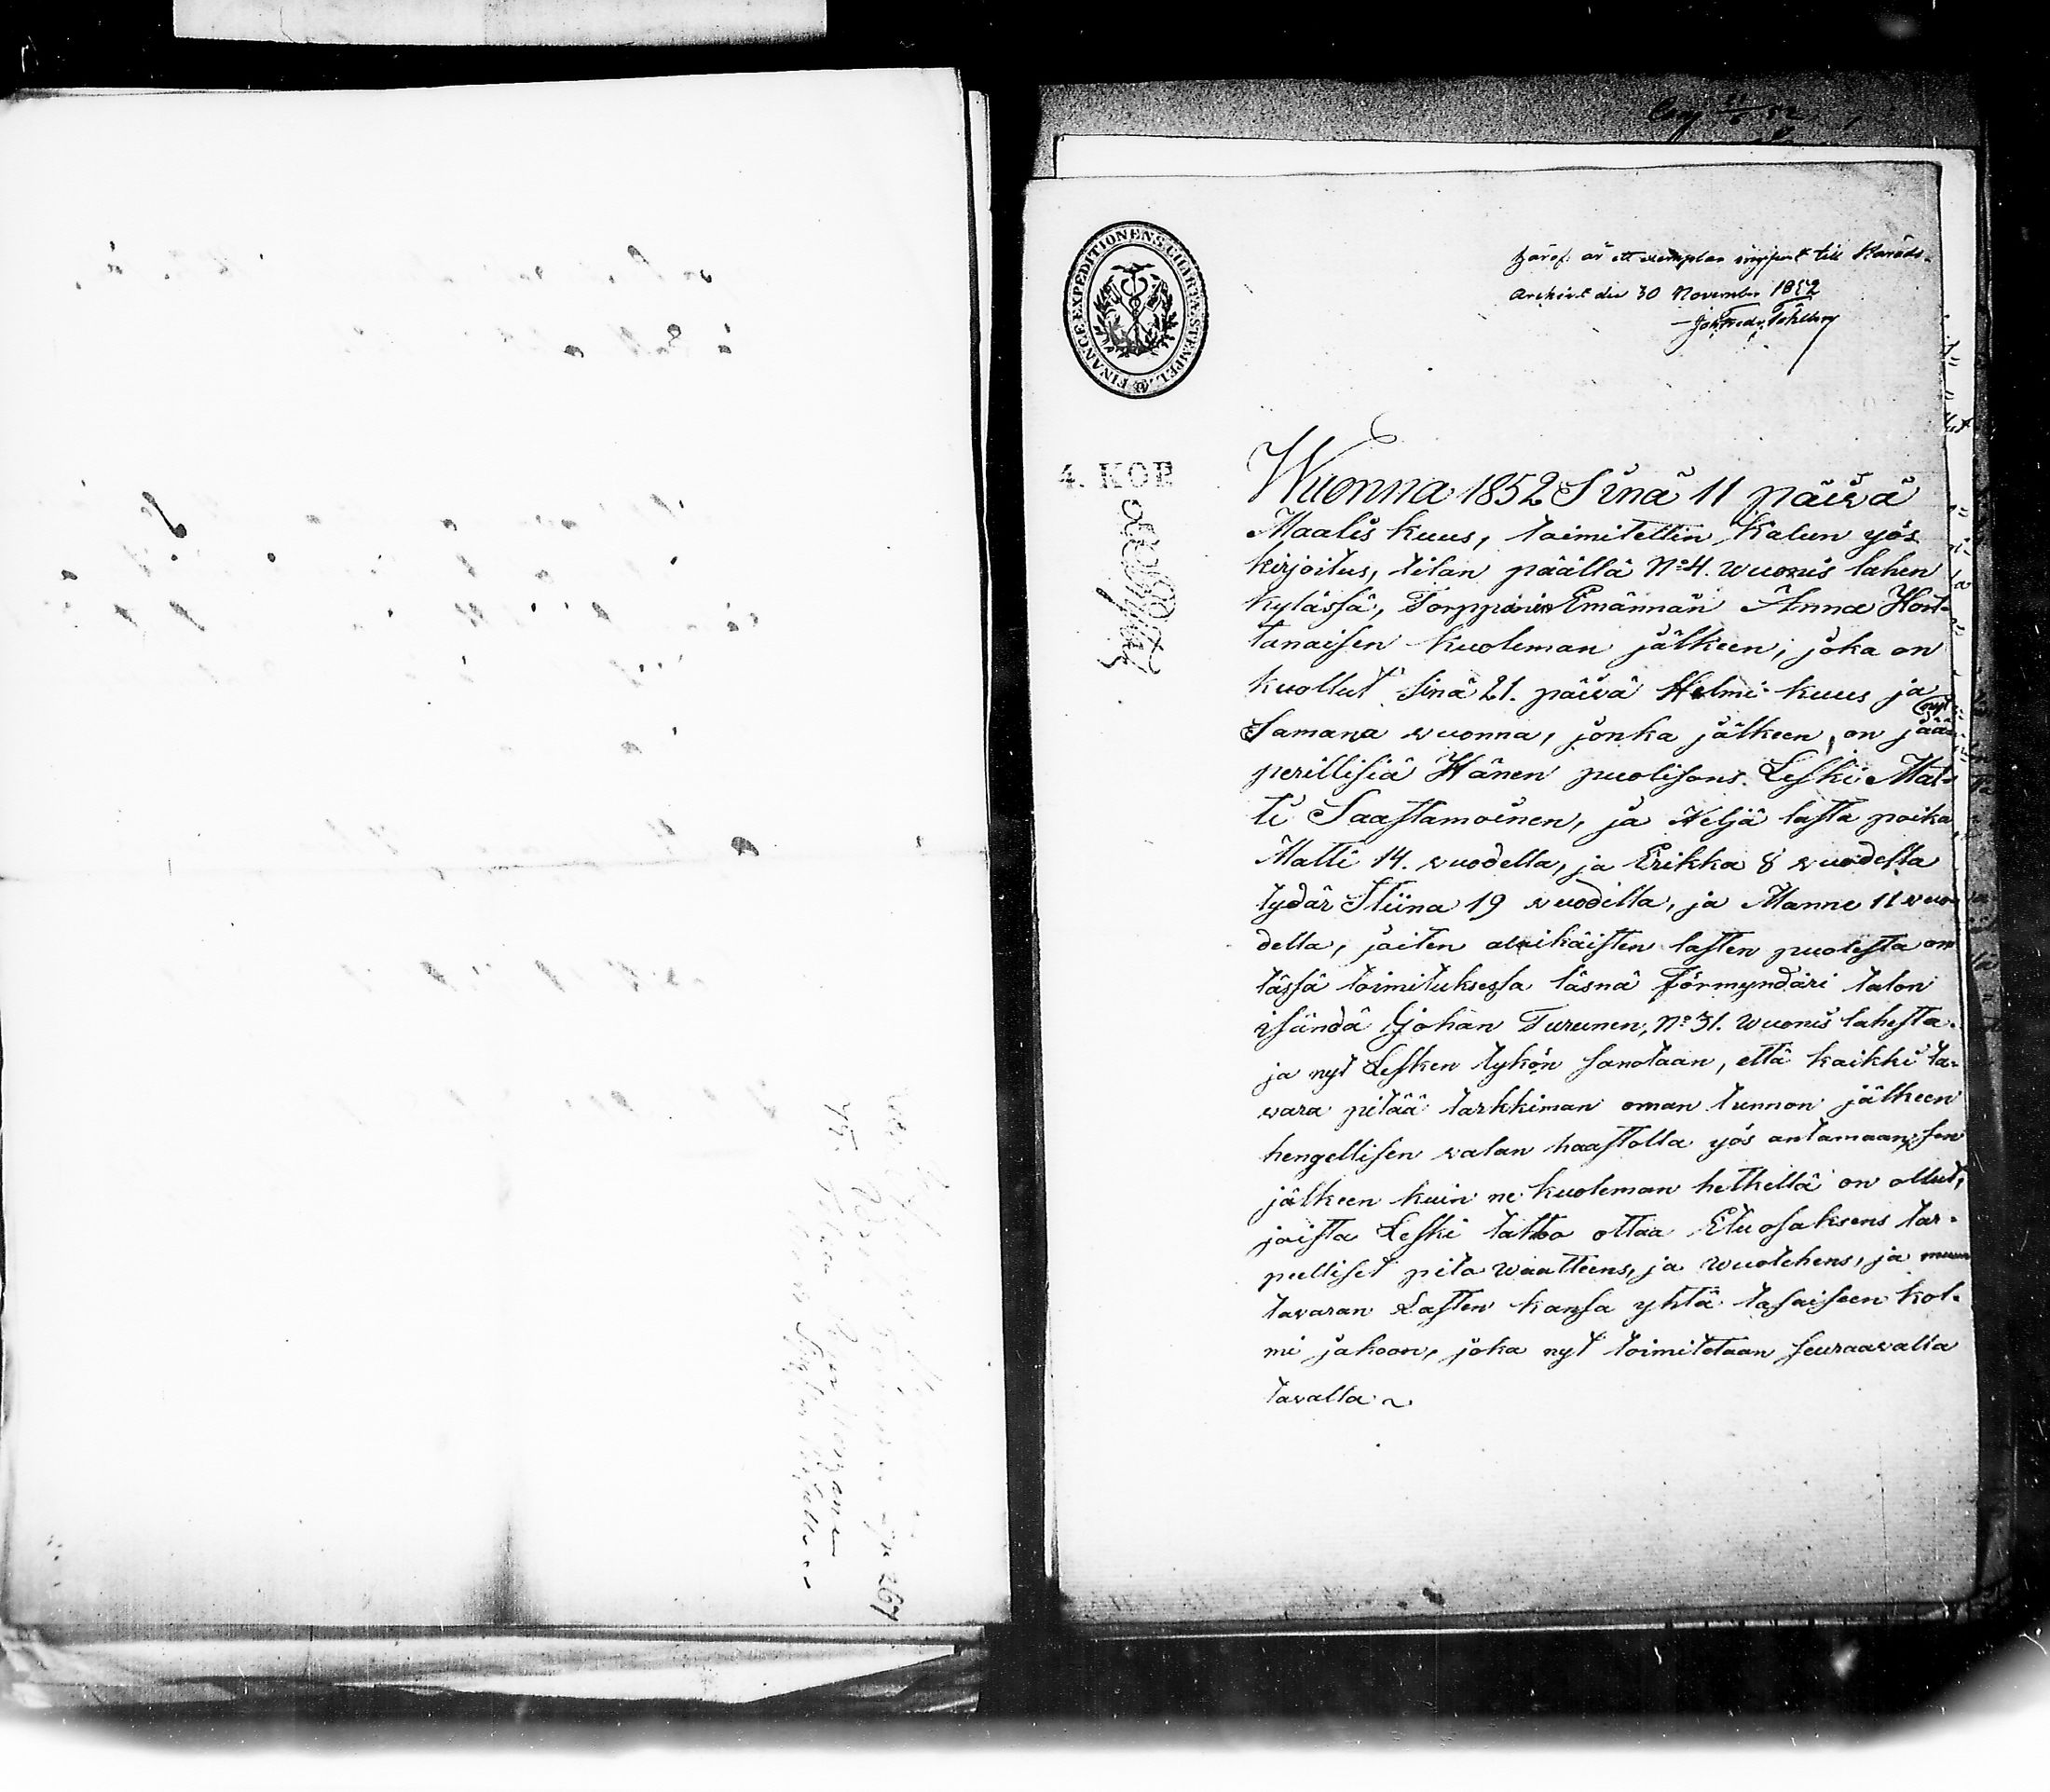 FINANCE EXPEDITIONENS CHARTÆ STEMPEL
4. KOP
Häraf är ett exemplar ingifvit till Härads-
Archivet den 30 November 1852
Wuonna 1852 Sinä 11 päivä
Maalis kuus, toimitettin Kalun yös
kirjoitus, tilan päällä No 4. wuonis lahen
kylässä, Torppärin Emännän Anna Hort-
tanaisen kuoleman jälkeen, joka on
kuollut Sinä 21. päivä Helmi kuus ja
Samana wuonna, jonka jälkeen, on nyt jään
perillisiä Hänen puolisons Leski Mat-
ti Saastamoinen, ja Neljä lasta poika
Matti 14. wuodella, ja Erikka 8 wuodella
tydär Stiina 19 wuodella, ja Manne 11 wuo
della, joiten alaikäisten lasten puolesta on
tässä toimituksessa läsnä Förmyndäri talon
isändä Johan Turunen, No 31. wuonis lahesta.
ja nyt Lesken tykön sanotaan, että kaikki ta-
vara pitää tarkkiman oman tunnon jälkeen
hengellisen valan haastolla yös antamaan, sen
jälkeen kuin ne kuoleman hetkellä on ollut,
joista Leski tahtoo ottaa Etuosaksens tar-
peelliset pito waatteens, ja wuotehens, ja muun
tavaran Lasten kansa yhtä tasaiseen kol-
mi jakoon, joka nyt toimitetaan seuraavalla
tavalla ~
267